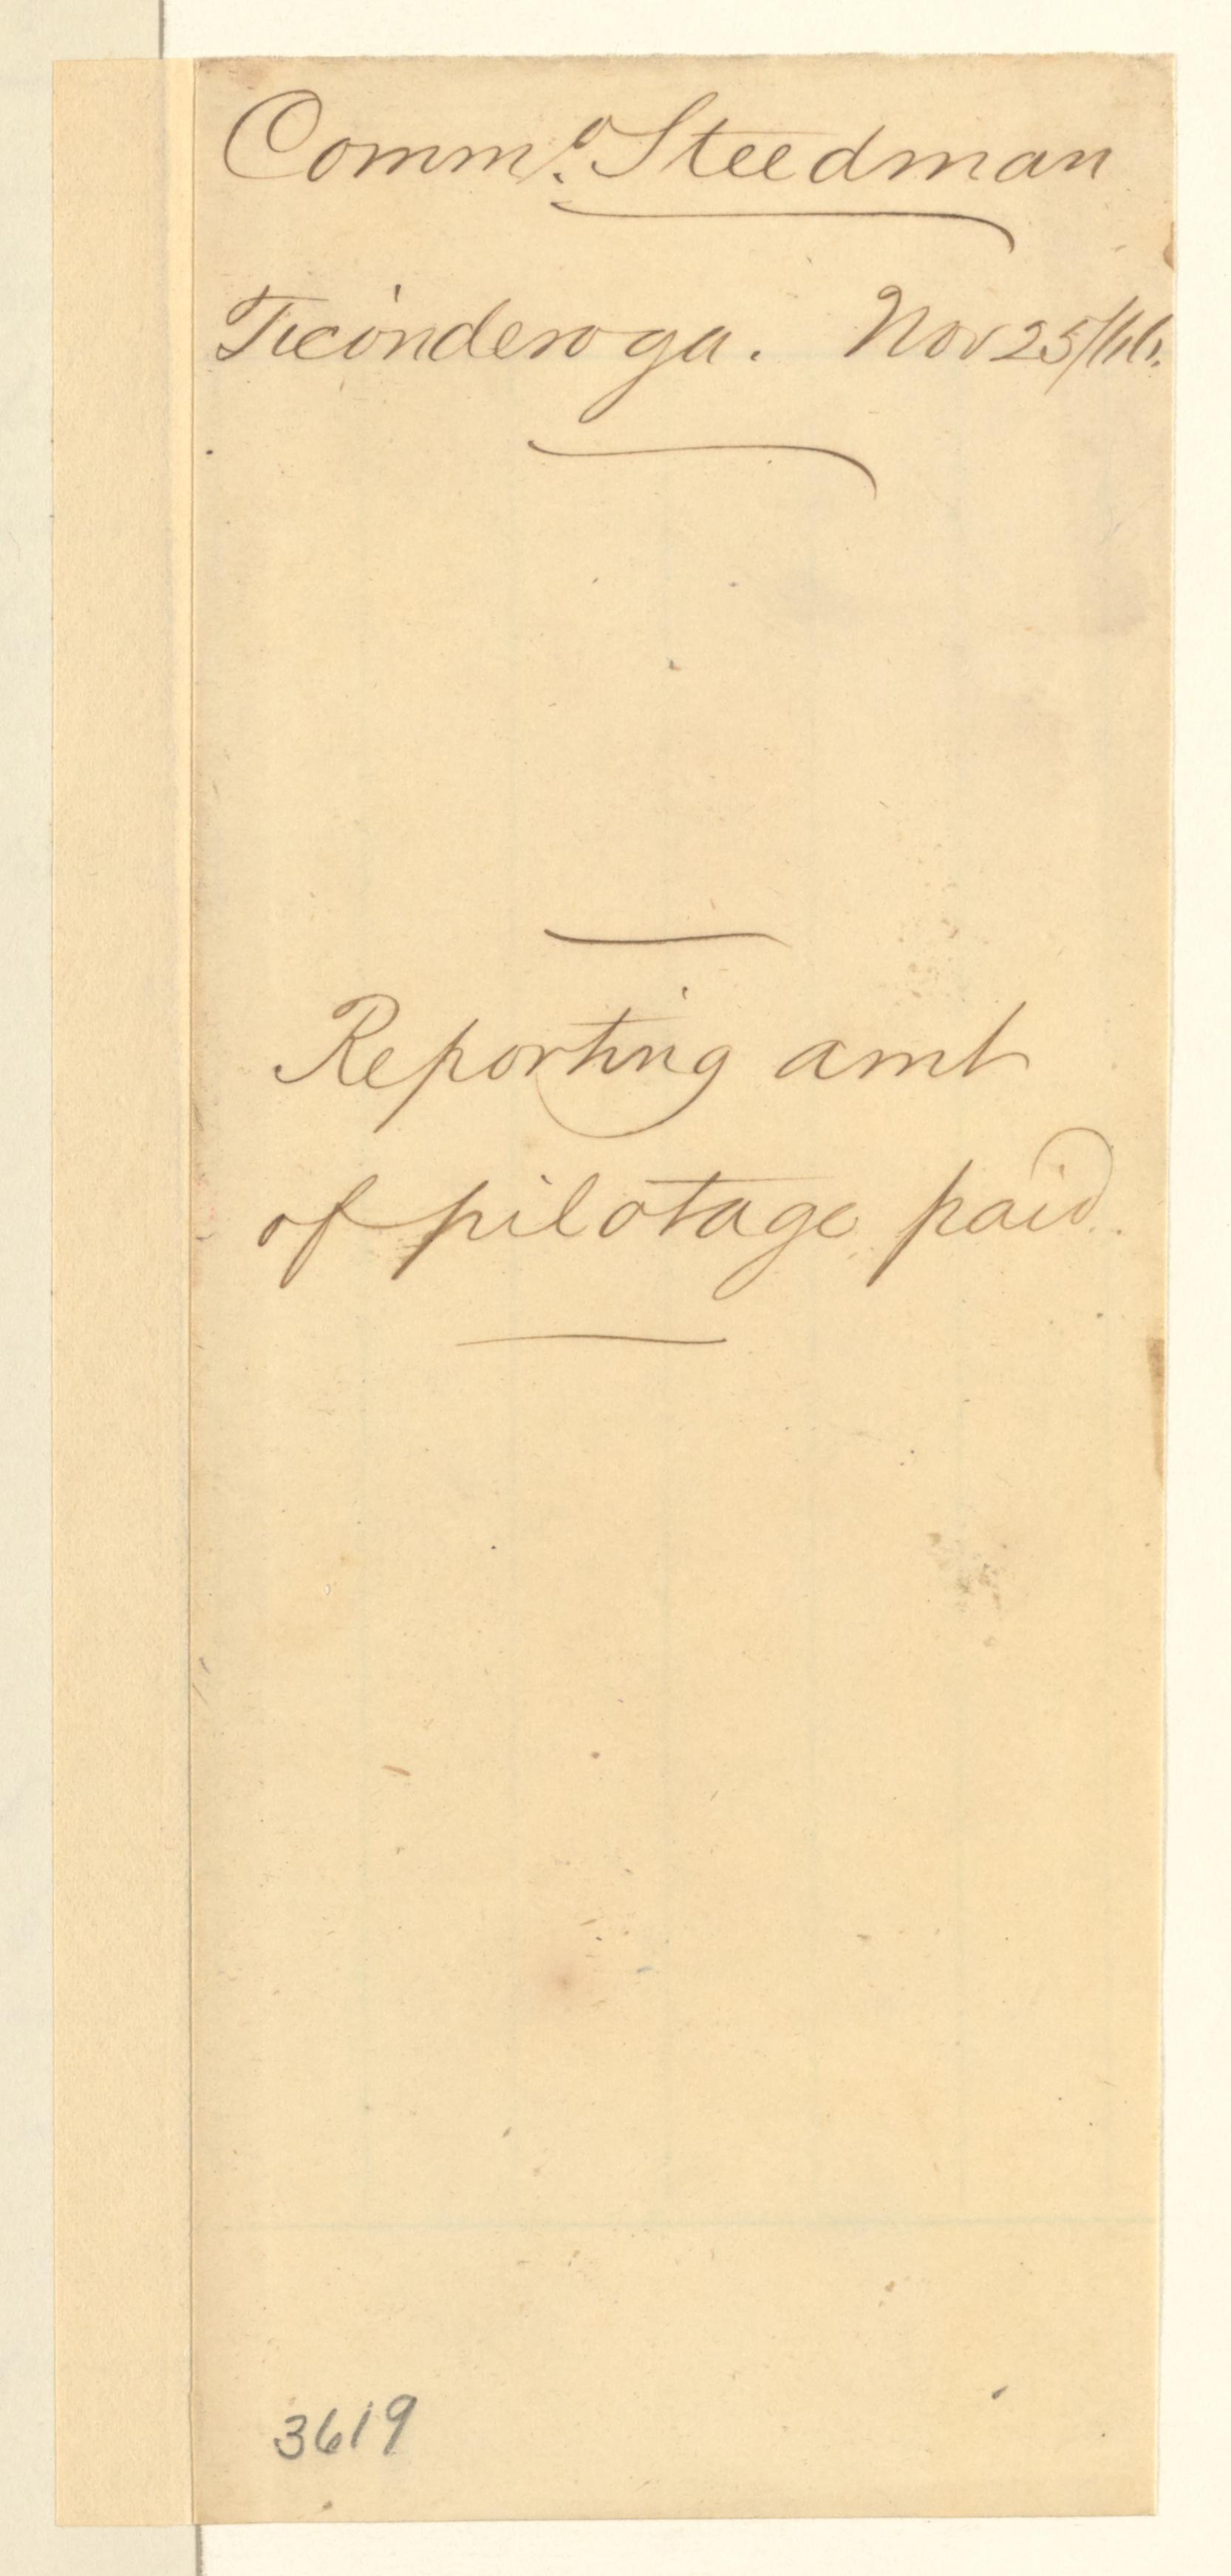 Commo. Steedman
Ticonderoga. Nov 25/66.
Reporting amt
of pilotage paid.
3619